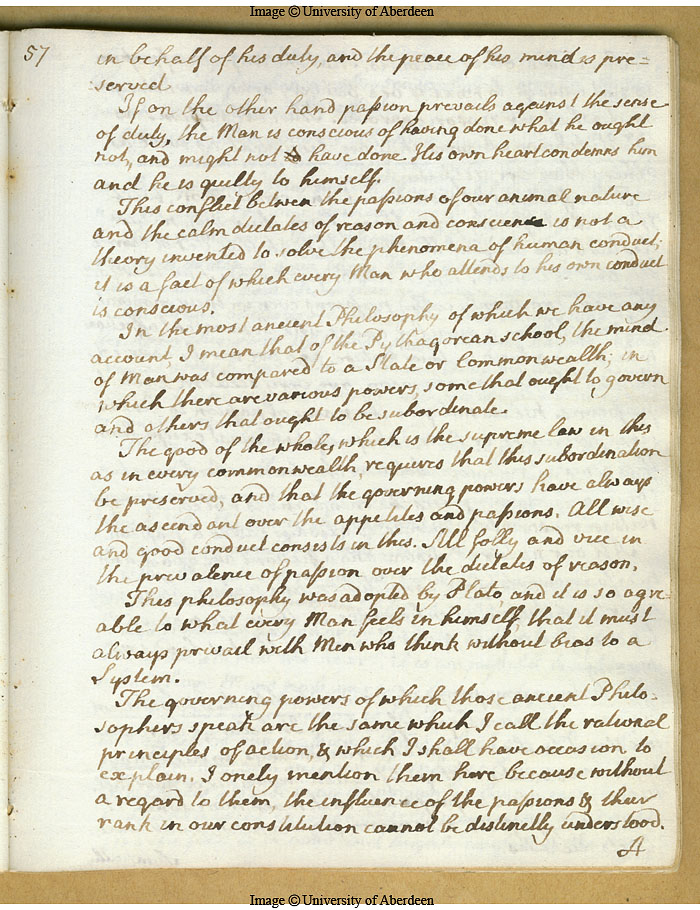 Image © University of Aberdeen
57
in behalf of his duty, and the peace of his mind is pre=
served
If on the other hand paſsion prevails against the sense
of duty, the Man is conscious of having done what he ought
not, and might not have done. His own heart condemns him
and he is guilty to himself.
This conflict between the paſsions of our animal nature
and the calm dictates of reason and conscience is not a
theory invented to solve the phenomena of human conduct;
it is a fact of which every Man who attends to his own conduct
is conscious.
In the most ancient Philosophy of which we have any
account, I mean that of the Pythagorean school, the mind
of Man was compared to a State or Commonwealth; in
which there are various powers, some that ought to govern
and others that ought to be subordinate.
The good of the whole, which is the supreme law in this
as in every commonwealth, requires that this subordination
be preserved, and that the governing powers have always
the ascendant over the appetites and paſsions. All wise
and good conduct consists in this. All folly and vice in
the prevalence of paſsion over the dictates of reason.
This philosophy was adopted by Plato, and it is so agre=
able to what every Man feels in himself, that it must
always prevail with Men who think without bias to a
System.
The governing powers of which those ancient Philo-
sophers speak are the same which I call the rational
principles of action, & which I shall have occasion to
explain. I onely mention them here because without
a regard to them, the influence of the paſsions & their
rank in our constitution cannot be distinctly understood.
A
Image © University of Aberdeen